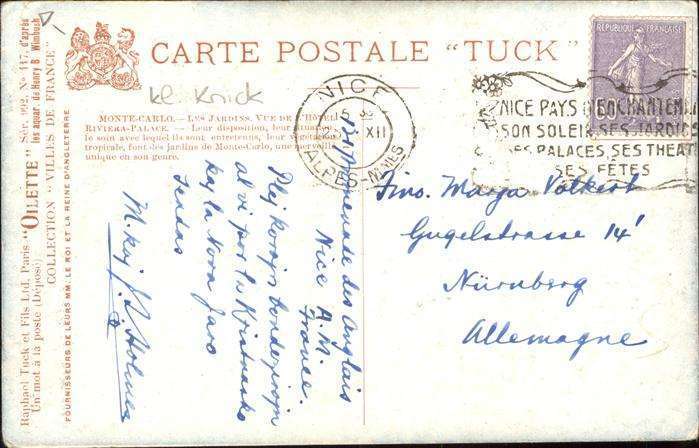 CARTE POSTALE "TUCK"
kl. Knick
MONTE-CARLO.—LES JARDINS. VUE DE L'HÔTEL
RIVIERA-PALACE. — Leur disposition, leur
le soin avec lequel ils sont entretenus, leur végétation
tropicale, font des jardins de Monte-Carlo, une merveille
unique en son genre.
NICE
XII
ALPES-MMES
REPUBLIQUE FRANÇAISE
60
NICE PAYS D'ENCHANTEM
SON SOLEIL, SES JARDINS
SES PALACES, SES THEAT
SES FÊTES
Fino. Marya Volkert
Gugelstrasse 14
Nürnberg
Allemagne
Promenade des Anglais
Nice A.M.
France.
Plej korajn bondezirojn
al vi por la Kristnasko
kaj la Nova Jaro
sendas
M. kaj J. S. Holmes
Raphael Tuck et Fils Ltd, Paris "OILETTE" Sér. 992, No 117, d'après
Un mot à la poste (Déposé) les aquar. de Henry B. Wimbush
COLLECTION "VILLES DE FRANCE"
FOURNISSEURS DE LEURS MM. LE ROI ET LA REINE D'ANGLETERRE